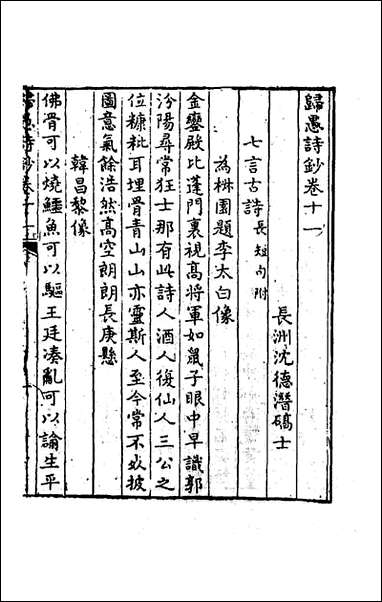 歸愚詩鈔卷十一
長洲沈德潛碻士
七言古詩長短句附
為楙園題李太白像
金鑾殿比蓬門裏視髙將軍如鼠子眼中早識郭
汾陽尋常狂士那有此詩人酒人復仙人三公之
位糠粃耳埋骨青山山亦靈斯人至今常不死披
圖意氣餘浩然髙空朗朗長庚懸
韓昌黎像
佛骨可以燒鱷魚可以驅王廷凑亂可以諭生平
歸愚詩鈔卷十一